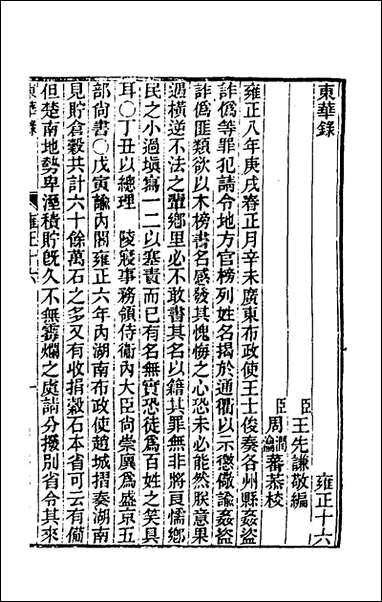 東華錄 雍正十六
臣王先謙敬編
臣周潤蕃周瀹蕃恭校
雍正八年庚戌春正月辛未廣東布政使王士俊奏各州縣姦盜
詐僞等罪犯請令地方官榜列姓名揭於通衢以示懲儆諭姦盜
詐僞匪類欲以木榜書名感發其愧悔之心恐未必能然朕意果
遇橫逆不法之輩鄉里必不敢書其名以籍其罪無非將頁懦鄉
民之小過塡寫一二以塞責而已有名無實恐徒爲百姓之笑具
耳○丁丑以總理 陵寢事務領侍衞內大臣尙崇廙爲盛京五
部尙書○戊寅諭內閣雍正六年內湖南布政使趙城摺奏湖南
見貯倉穀共計六十餘萬石之多又有收捐穀石本省可云有備
但楚南地勢卑溼積貯旣久不無霉爛之處請分撥別省令其來
東華錄 雍正十六 一